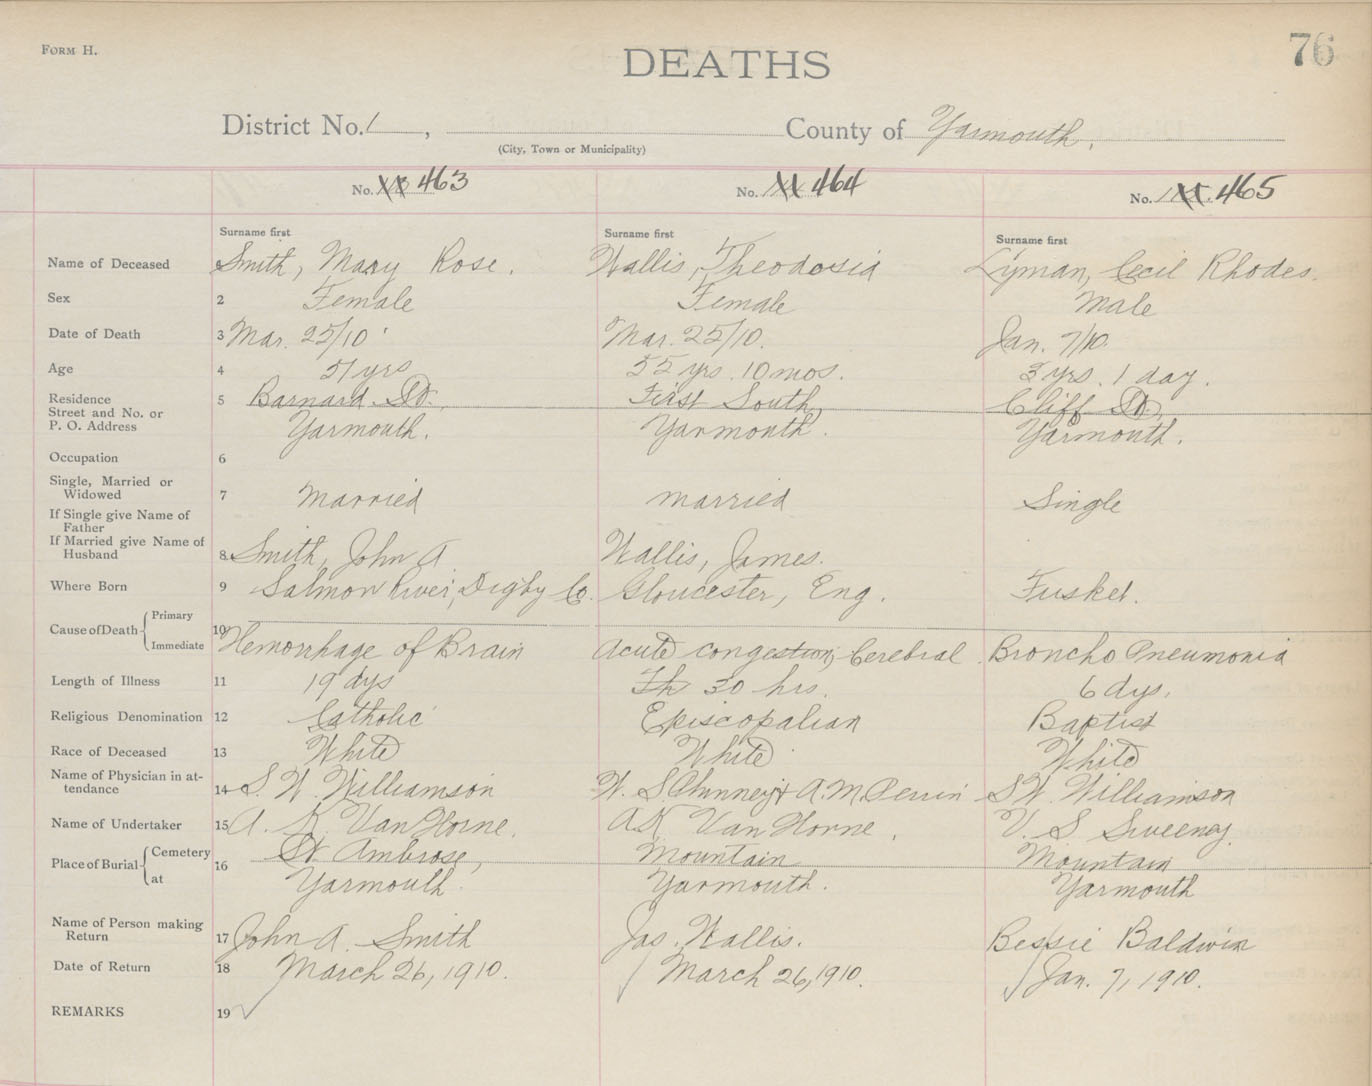 FORM H.
76
DEATHS
District No. 1, County of Yarmouth.
(City, Town or Municipality)
No. 463 No. 464 No. 465
Surname first Surname first Surname first
Name of Deceased 1 Smith, Mary Rose. Wallis, Theodosia Lyman, Cecil Rhodes.
Sex 2 Female Female Male
Date of Death 3 Mar. 25/10 Mar. 25/10. Jan. 7/10.
Age 4 51 yrs 55 yrs. 10 mos. 3 yrs. 1 day.
Residence 5 Barnard St. East South, Cliff St,
Street and No. or
P. O. Address Yarmouth. Yarmouth. Yarmouth.
Occupation 6
Single, Married or
Widowed 7 Married married Single
If Single give Name of
Father
If Married give Name of
Husband 8 Smith, John A Wallis, James.
Where Born 9 Salmon River, Digby Co. Gloucester, Eng. Tusket.
Cause of Death Primary
10
Immediate Hemorrhage of Brain Acute congestion, Cerebral Broncho Pneumonia
Length of Illness 11 19 dys 30 hrs. 6 dys.
Religious Denomination 12 Catholic Episcopalian Baptist
Race of Deceased 13 White White White
Name of Physician in at-
tendance 14 S. W. Williamson W. S. & A. M. Perrin S W. Williamson
Name of Undertaker 15 A. K. Van Horne. A.K. Van Horne. V. S Sweeney
Place of Burial Cemetery 16 St Ambrose, Mountain Mountain
at Yarmouth. Yarmouth. Yarmouth
Name of Person making
Return 17 John A. Smith Jas. Wallis. Bessie Baldwin
Date of Return 18 March 26, 1910. March 26, 1910. Jan. 7, 1910.
REMARKS 19